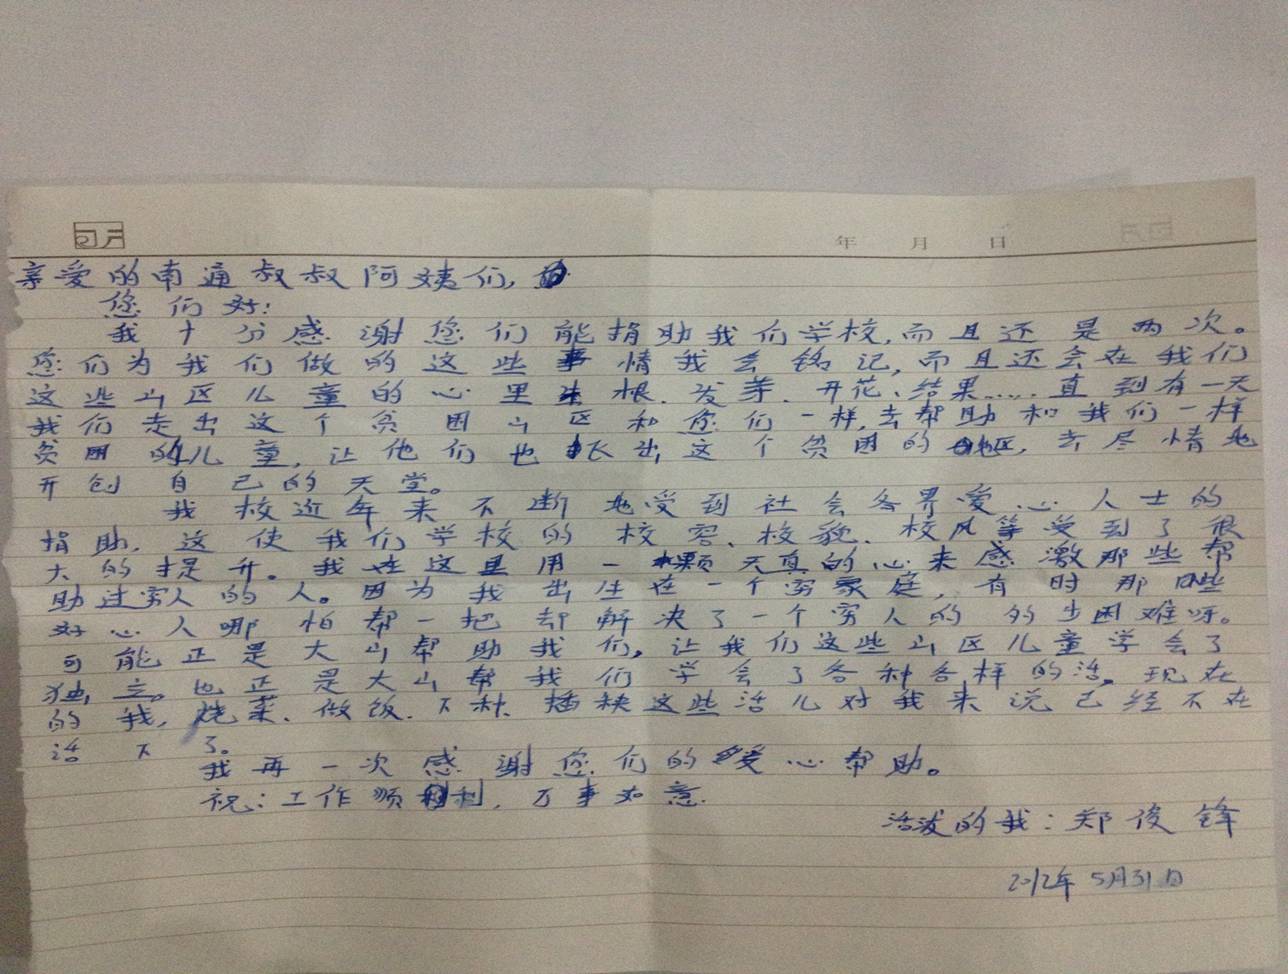 年 月 日
亲爱的南通叔叔阿姨们,
您们好:
我十分感谢您们能捐助我们学校,而且还是两次。
您们为我们做的这些事情我会铭记,而且还会在我们
这些山区儿童的心里生根、发芽、开花、结果……直到有一天
我们走出这个贫困山区和您们一样,去帮助和我们一样
贫困的儿童,让他们也长出这个贫困的地区,去尽情地
开创自己的天堂。
我校近年来不断地受到社会各界爱心人士的
捐助,这使我们学校的校容、校貌、校风等受到了很
大的提升。我在这里用一颗天真的心来感激那些帮
助过穷人的人。因为我出生在一个穷家庭,有时那些
好心人哪怕帮一把却解决了一个穷人的的步困难呀。
可能正是大山帮助我们,让我们这些山区儿童学会了
独立。也正是大山帮我们学会了各种各样的活。现在
的我,烧菜、做饭、下种、插秧这些活儿对我来说已经不在
话下了。
我再一次感谢您们的爱心帮助。
祝:工作顺利,万事如意.
活泼的我:郑俊锋
2012年5月31日